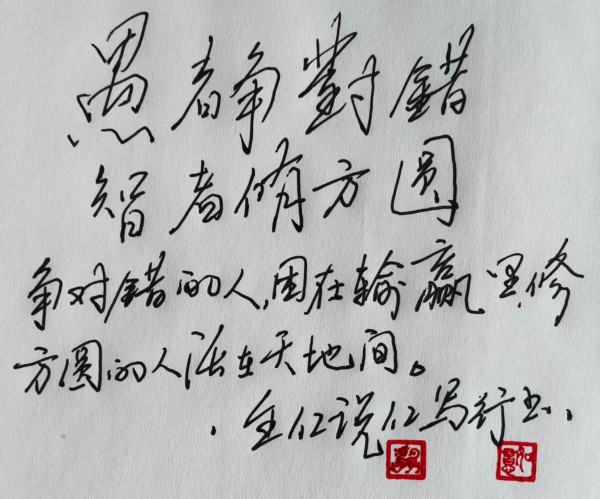 愚者争對錯
智者脩方圆
争对错的人,困在输赢里,修
方圆的人活在天地间。
仁说仁写行书